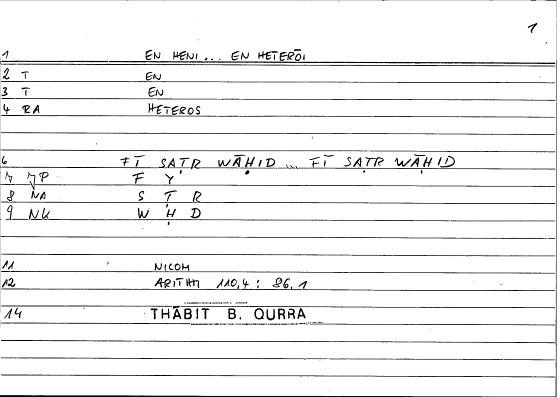 1
1 EN HENI ... EN HETERŌI
2 T EN
3 T EN
4 RA HETEROS
6 FĪ SAṬR WĀḤID ... FĪ SAṬR WĀḤID
7 JP F Y
8 NA S Ṭ R
9 NK W Ḥ D
11 NICOM
12 ARITHM 110,4 : 86,1
14 THĀBIT B. QURRA